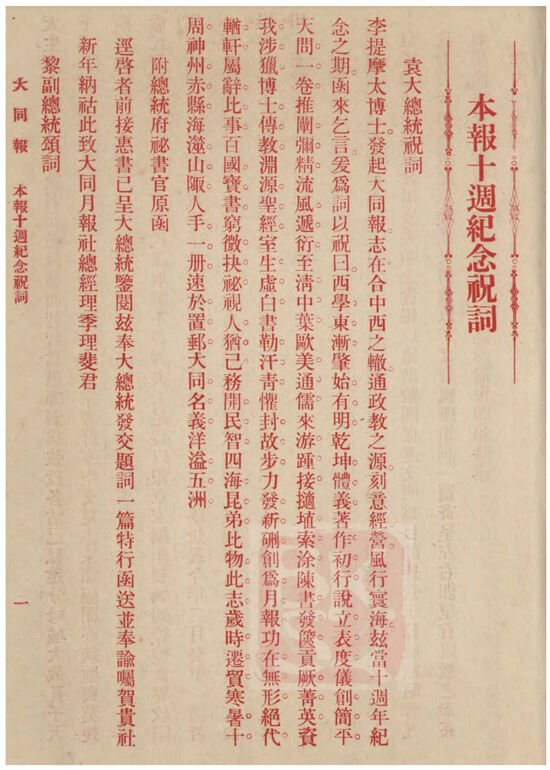 本報十週紀念祝詞
袁大總統祝詞
李提摩太博士。發起大同報。志在合中西之轍。通政教之源。刻意經營。風行寰海。茲當十週年紀
念之期。函來乞言。爰爲詞以祝曰。西學東漸。肇始有明。乾坤體義。著作初行。說立表度。儀創簡平。
天問一卷。推闡彌精。流風遞衍。至淸中葉。歐美通儒。來游踵接。擿埴索涂。陳書發篋。貢厥菁英。資
我涉獵。博士傳教。淵源聖經。室生虛白。書勒汗靑。懼封故步。力發新硎。創爲月報。功在無形。絕代
輶軒。屬辭比事。百國寶書。窮微抉祕。視人猶己。務開民智。四海昆弟。比物此志。歲時遷貿。寒暑十
周。神州赤縣。海澨山陬。人手一册。速於置郵。大同名義。洋溢五洲。
附總統府祕書官原函
逕啓者前接惠書已呈大總統鑒閱茲奉大總統發交題詞一篇特行函送並奉諭囑賀貴社
新年納祜此致大同月報社總經理季理斐君
黎副總統頌詞
大同報 本報十週紀念祝詞 一